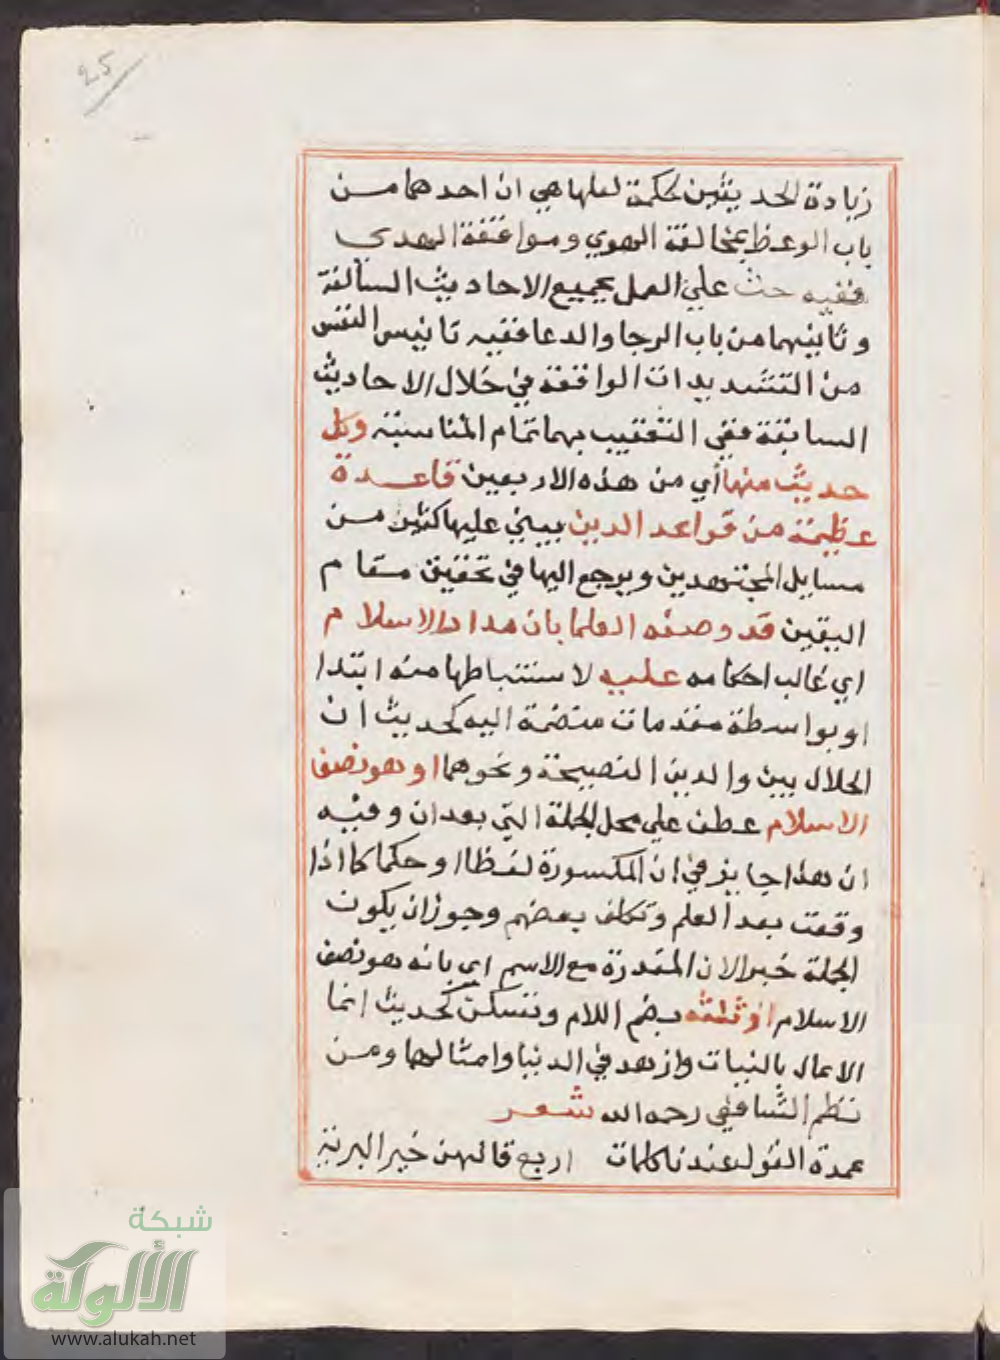 25
زيادة الحديثين لحكمة لعلها هي ان احدهما من
باب الوعظ بمخالفة الهوي وموافقة الهدي
ففيه حث علي العمل بجميع الاحاديث السالفة
وثانيهما من باب الرجا والدعا ففيه تانيس النفس
من التشديدات الواقعة في خلال الاحاديث
السابقة ففي التعقيب بهما تمام المناسبة وكل
حديث منها اي من هذه الاربعين قاعدة
عظيمة من قواعد الدين يبني عليها كثير من
مسايل المجتهدين ويرجع اليها في تحقيق مقام
اليقين قد وصفه العلما بان مدار الاسلام
اي غالب احكامه عليه لاستنباطها منه ابتدا
او بواسطة مقدمات منضمة اليه كحديث ان
الحلال بين والدين النصيحة ونحوهما او هو نصف
الاسلام عطف علي محل الجملة التي بعد ان وفيه
ان هذا جايز في ان المكسورة لفظا او حكما كما اذا
وقعت بعد العلم وتكلف بعضهم وجوز ان يكون
الجملة خبر الان المقدرة مع الاسم اي بانه هو نصف
الاسلام او ثلثه بضم اللام وتسكن كحديث انما
الاعمال بالنيات وازهد في الدنيا وامثالهما ومن
نظم الشافعي رحمه الله شعر
عمدة القول عندنا كلمات اربع قالهن خير البرية
شبكة
الألوكة
www.alukah.net